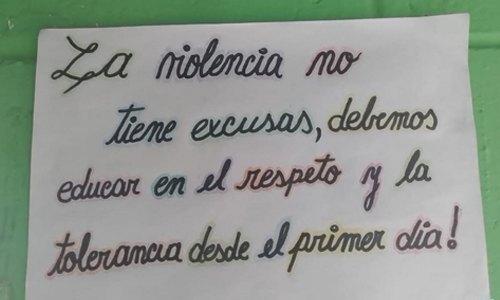 La violencia no
tiene excusas, debemos
educar en el respeto y la
tolerancia desde el primer dia!